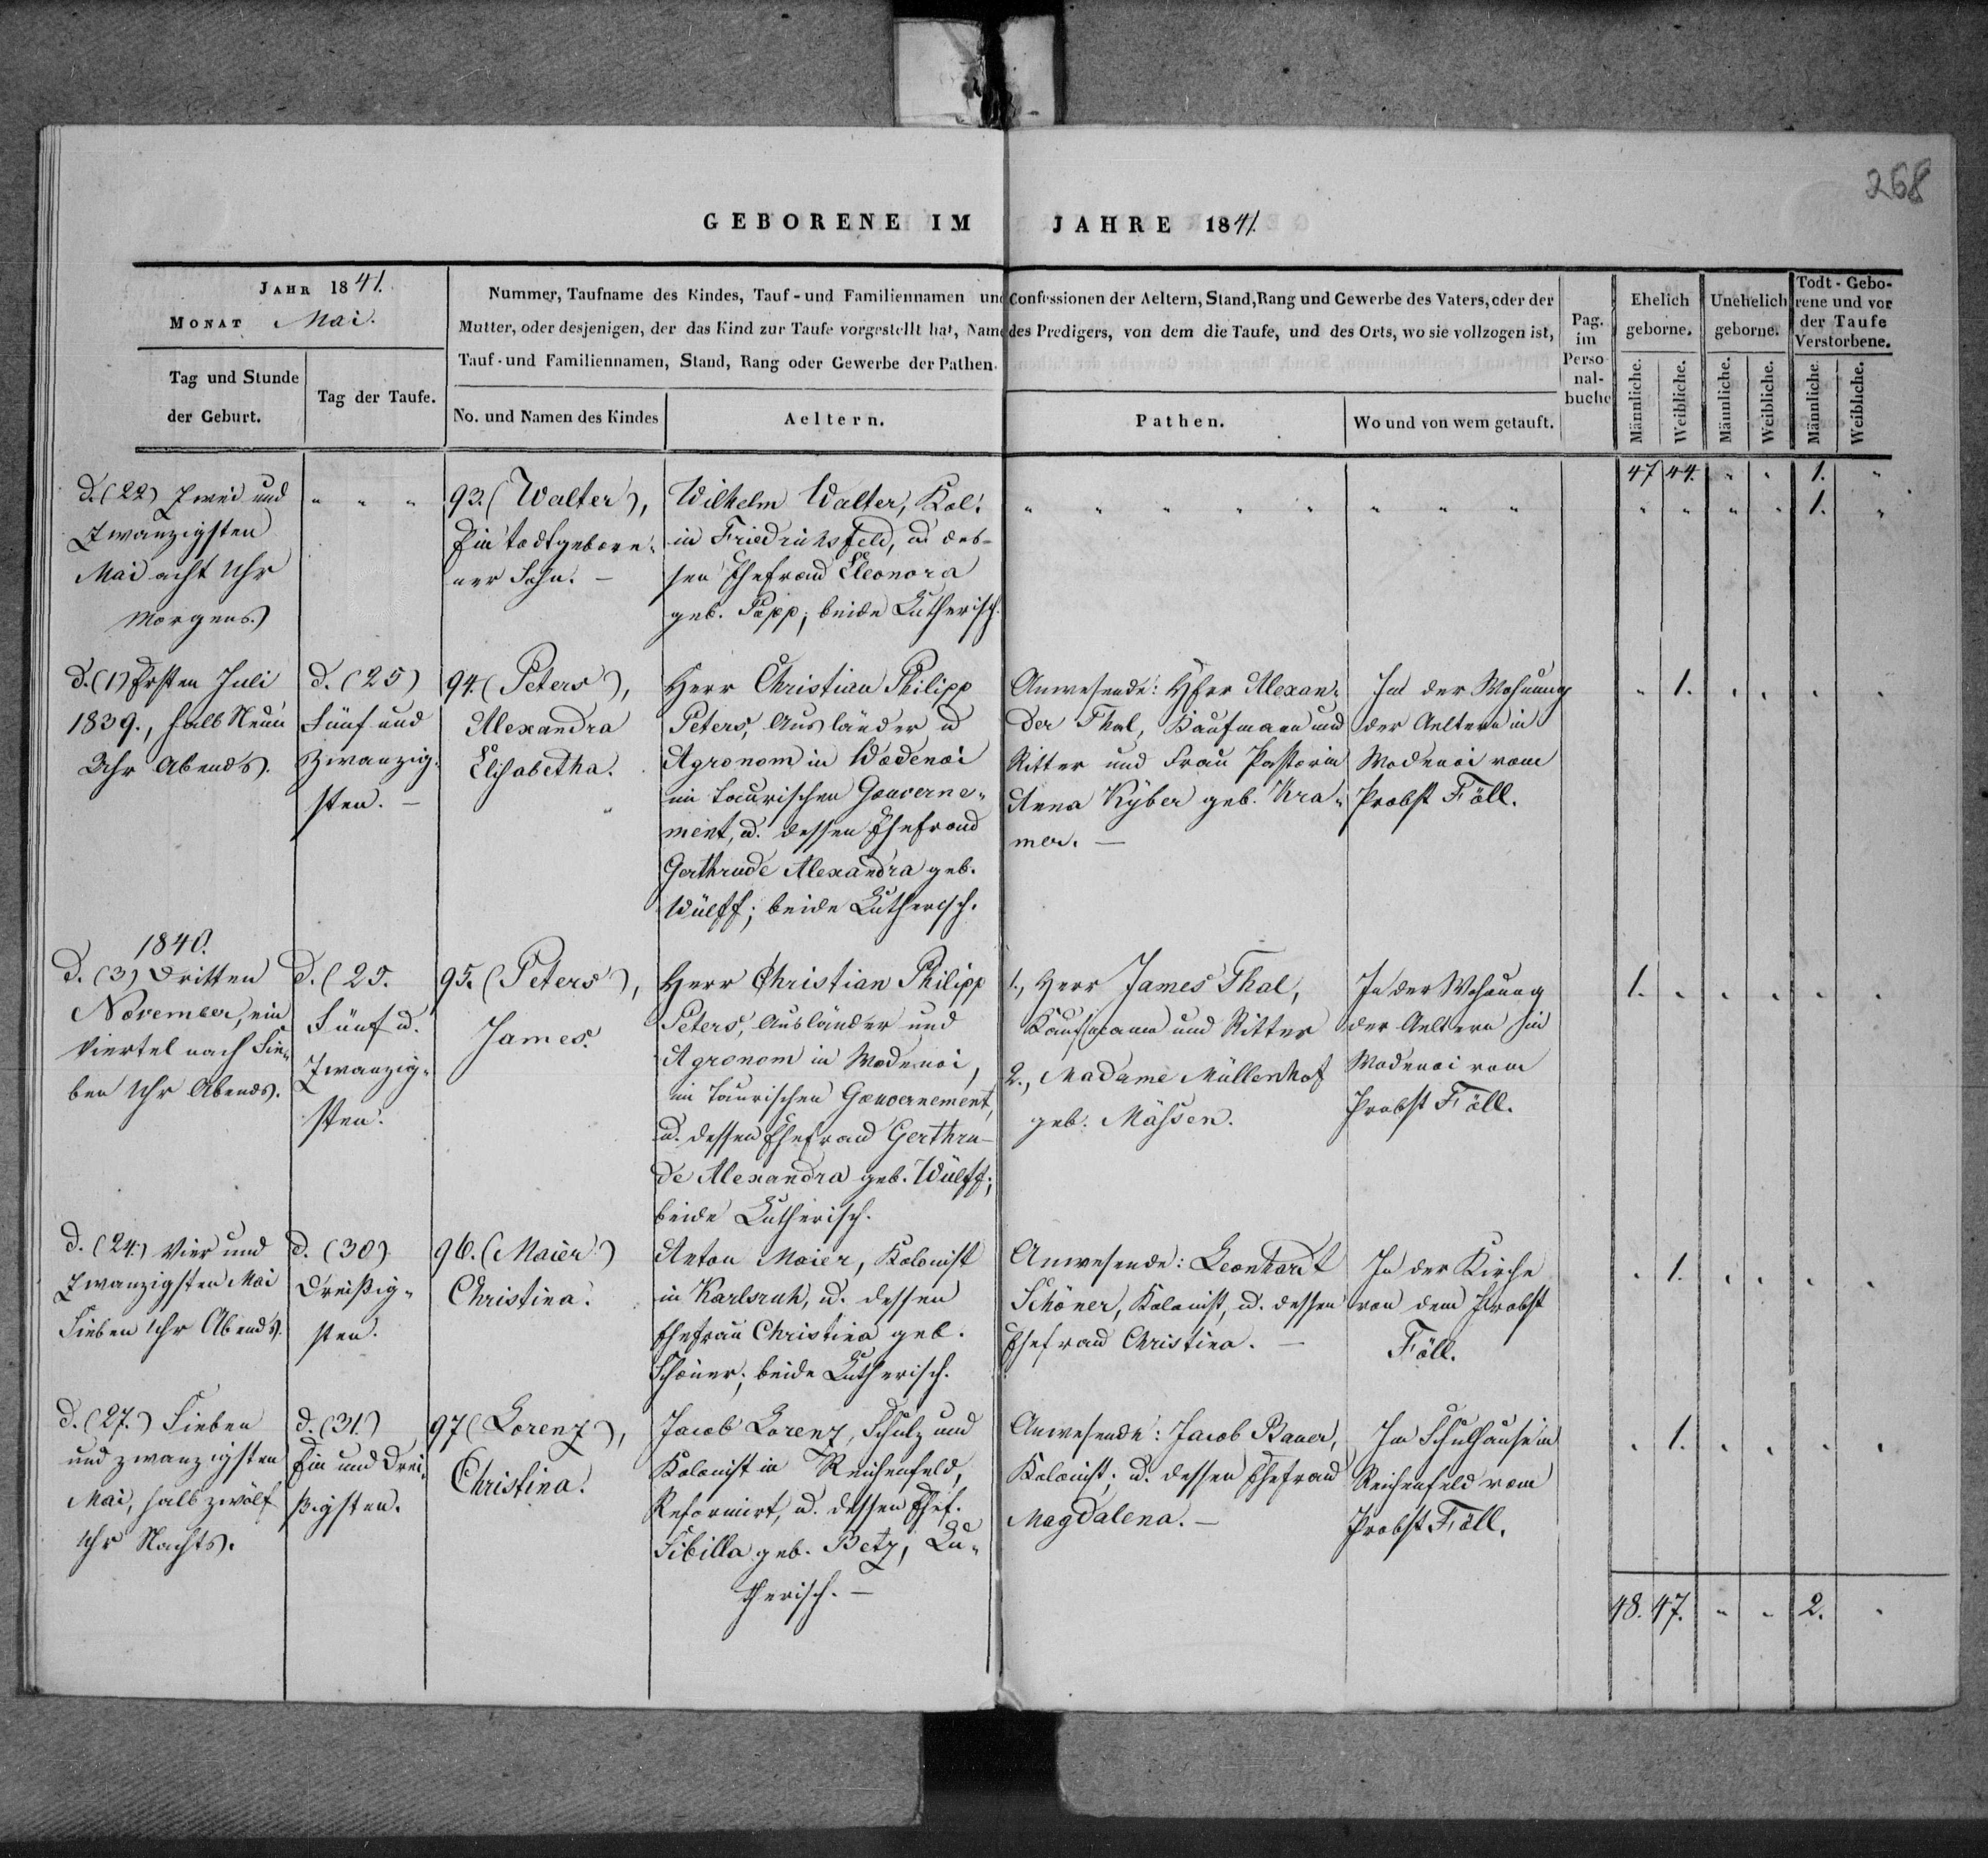 268
GEBORENE IM JAHRE 1841.
JAHR 1841.
MONAT Mai.
Nummer, Taufname des Kindes, Tauf- und Familiennamen und Confessionen der Aeltern, Stand, Rang und Gewerbe des Vaters, oder der
Mutter, oder desjenigen, der das Kind zur Taufe vorgestellt hat, Name des Predigers, von dem die Taufe, und des Orts, wo sie vollzogen ist,
Tauf- und Familiennamen, Stand, Rang oder Gewerbe der Pathen.
Tag und Stunde
der Geburt.
Tag der Taufe.
No. und Namen des Kindes
Aeltern.
Pathen.
Wo und von wem getauft.
Pag.
im
Perso-
nal-
buche
Ehelich
geborne.
Unehelich
geborne.
Todt-Gebo-
rene und vor
der Taufe
Verstorbene.
Männliche.
Weibliche.
Männliche.
Weibliche.
Männliche.
Weibliche.
47 44. " " 1. "
d. (22) Zwei und
Zwanzigsten
Mai acht Uhr
Morgens.)
" " "
93. (Walter),
Ein todtgebore-
ner Sohn. –
Wilhelm Walter, Kol:
in Friedrichsfeld, u. des-
sen Ehefrau Eleonora
geb. Papp; beide Lutherisch.
" " " " " " " "
" " " " 1. "
d. (1) Ersten Juli
1839., halb Neun
Uhr Abends.
d. (25)
Fünf und
zwanzig-
sten. –
94. (Peters),
Alexandra
Elisabetha.
Herr Christian Philipp
Peters, Ausländer u
Agronom in Wodenoi
im taurischen Gouverne-
ment, u. dessen Ehefrau
Gerthrude Alexandra geb.
Wülff; beide Lutherisch.
Anwesende: Herr Alexan-
der Thal, Kaufmann und
Ritter und Frau Pastorin
Anna Kyber geb. Kra-
mer. –
In der Wohnung
der Aeltern in
Wodenoi vom
Probst Föll.
" 1. " " " "
1840.
d. (3) Dritten
November, ein
Viertel nach Sie-
ben Uhr Abends.
d. (25.
Fünf u.
Zwanzig-
sten.
95. (Peters),
James.
Herr Christian Philipp
Peters, Ausländer und
Agronom in Wodenoi,
im Taurischen Gouvernement,
u. dessen Ehefrau Gerthru-
de Alexandra geb. Wülff;
beide Lutherisch.
1., Herr James Thal,
Kaufmann und Ritter
2., Madame Müllenhof
geb. Mässen.
In der Wohnung
der Aeltern in
Wodenoi vom
Probst Föll.
1. " " " " "
d. (24.) Vier und
Zwanzigsten Mai
Sieben Uhr Abends.
d. (30)
Dreißig-
sten.
96. (Maier)
Christina.
Anton Maier, Kolonist
in Karlsruh, u. dessen
Ehefrau Christina geb.
Schöner; beide Lutherisch.
Anwesende: Leonhardt
Schöner, Kolonist, u. dessen
Ehefrau Christina. –
In der Kirche
von dem Probst
Föll.
" 1. " " " "
d. (27.) Sieben
und zwanzigsten
Mai, halb zwölf
Uhr Nachts.
d. (31.)
Ein und Drei-
ßigsten.
97 (Lorenz),
Christina.
Jacob Lorenz, Schulz und
Kolonist in Reichenfeld,
Reformirt, u. dessen Ehef.
Sibilla geb. Betz, Lu-
therisch. –
Anwesende: Jacob Bauer,
Kolonist, u. dessen Ehefrau
Magdalena. –
Im Schulhause in
Reichenfeld vom
Probst Föll.
" 1. " " " "
48. 47. " " 2. "